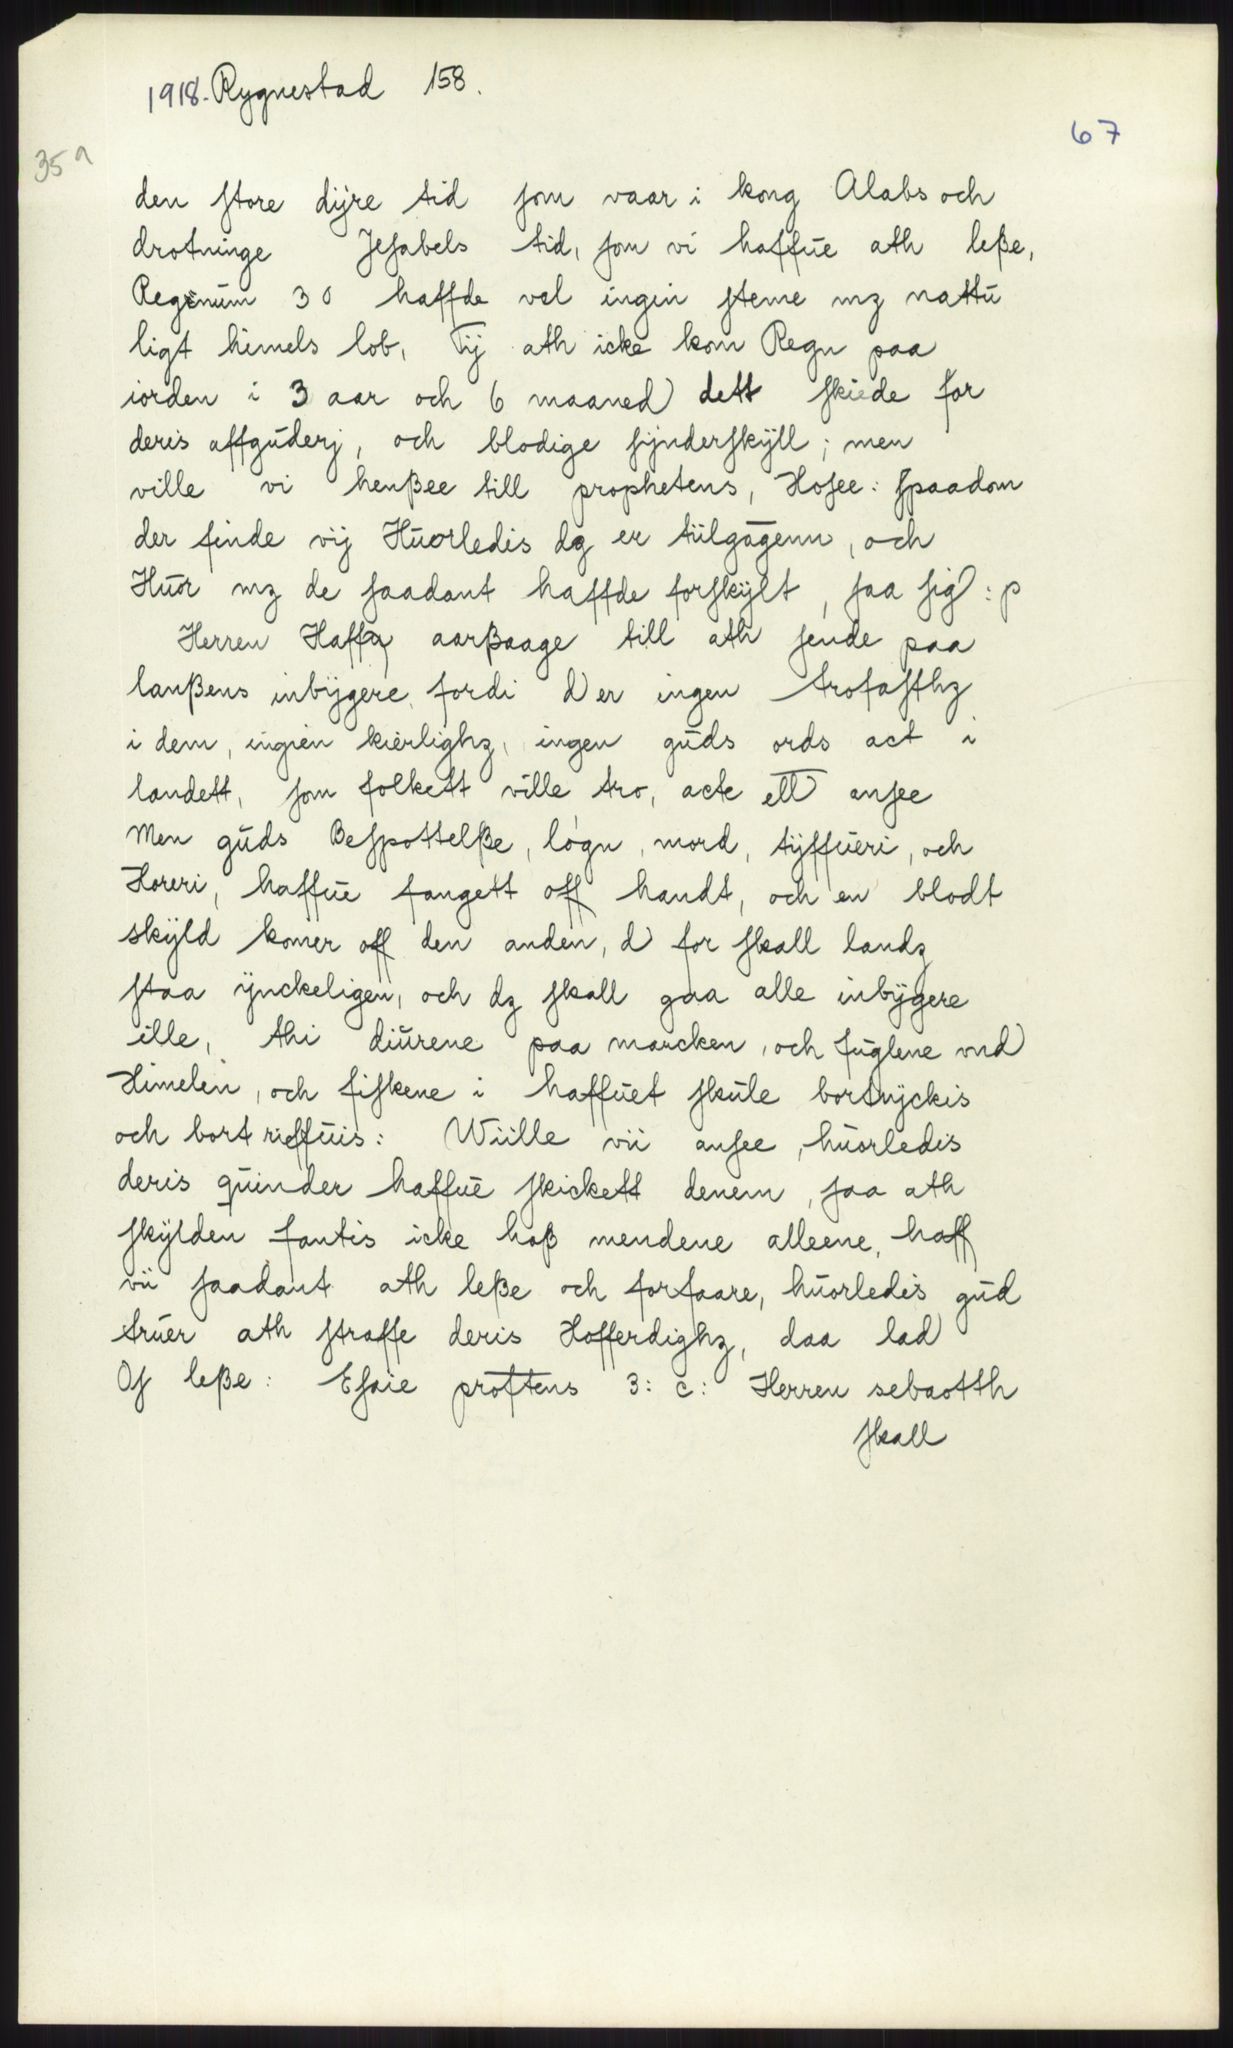 1918. Rygnestad 158.
67
35 a
den store dyre tid som vaar i kong Alabs och
drotninge Jesabels tid, som vi haffue ath leße,
Regsnum 30 haffde vel ingin steme mz nattu
ligt himels lob, Tij ath icke kom Regn paa
iorden i 3 aar och 6 maaned dett skiede for
deris affguderj, och blodige synderskyll; men
ville vi henßee till prophetens, Hosee: spaadom
der finde vij Huorledis dg er tiilgagenn, och
Huor mz de saadant haffde forskylt, saa sig: p
Herren Haffr aarßaage till ath sende paa
lanßens inbygere, fordi d er ingen trofasthz
i dem, ingien kierlighz, ingen guds ords act i
landett, som folkett ville tro, acte ell ansee
Men guds Bespottelße, løgn, mord, tyffueri, och
Horeri, haffue fangett off handt, och en blodt
skyld komer off den anden, d for skall landz
staa ynckeligen, och dz skall gaa alle inbygere
ille, thi diurene paa marcken, och fuglene vnd
Himelen, och fiskene i haffuet skule bortryckis
och bort rieffuis: Wiille vii ansee, huorledis
deris quinder haffue skickett denem, saa ath
skylden fantis icke hoß mendene alleene, haff
vii saadant ath leße och forfaare, huorledis gud
truer ath straffe deris Hofferdighz, daa lad
Os leße: Esaie proftens 3: c: Herren sebaotth
skall